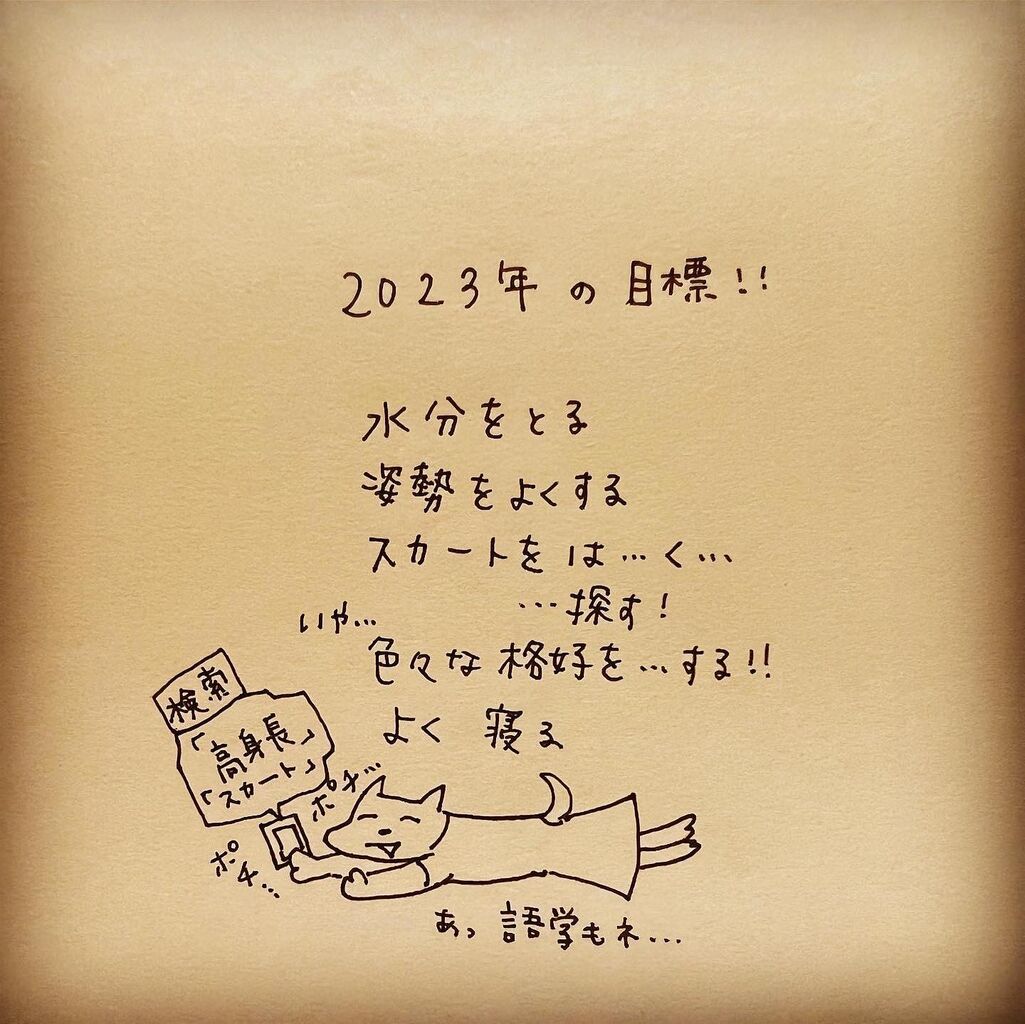 2023年の目標!!
水分をとる
姿勢をよくする
スカートをは…く…
…探す!
いや…
色々な格好を…する!!
よく寝る
検索
「高身長」
「スカート」
ポチ…
ポチ…
あっ語学もネ…